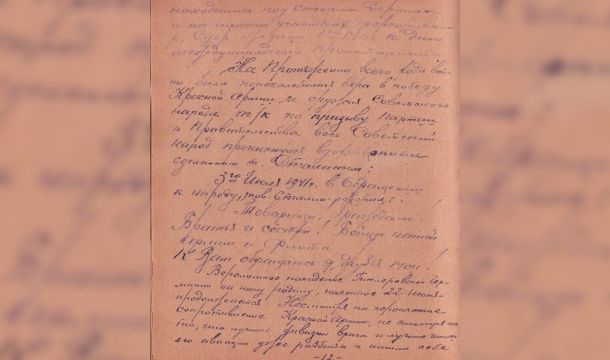 находились под стенами Берлина
и на многих участках форсировали
р. Одер 1ое Мая к дню
международной
На Протяжении всего хода вой-
ны была непоколебимая вера в победу
Красной Армии и оружия Советского
народа т/к по призыву Партии
и Правительства весь Советский
народ проникнулся
сделанным т. Сталиным:
3го Июля 1941г. в Обращении
к народу, тов. Сталин говорил:
Товарищи! Граждане!
Братья и сестры! Бойцы нашей
армии и флота
К Вам обращаюсь я, друзья мои!
Вероломное нападение Гитлеровской Гер-
мании на нашу родину, начатое 22 июня-
продолжается. Несмотря на героическое
сопротивление Красной Армии, не смотря на
то, что лучшие дивизии врага и лучшие части
его авиации уже разбиты и нашли себе
-12-